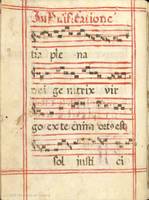 In Purificatione
tia ple na
Dei ge nitrix vir
go ex te enim ortus est
sol justi ci